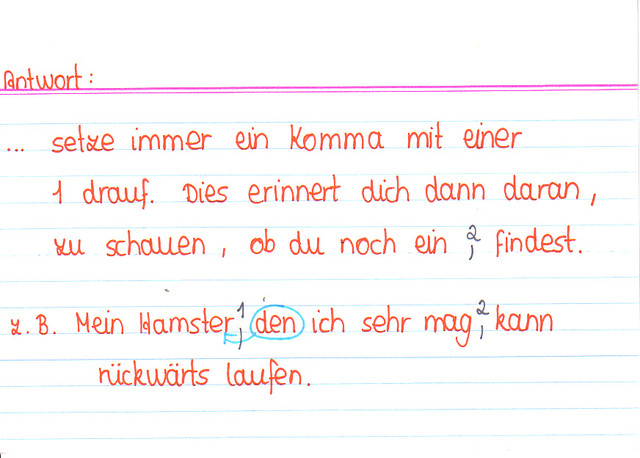 Antwort:
... setze immer ein Komma mit einer
1 drauf. Dies erinnert dich dann daran,
zu schauen, ob du noch ein ,2 findest.
z.B. Mein Hamster,1 den ich sehr mag,2 kann
rückwärts laufen.